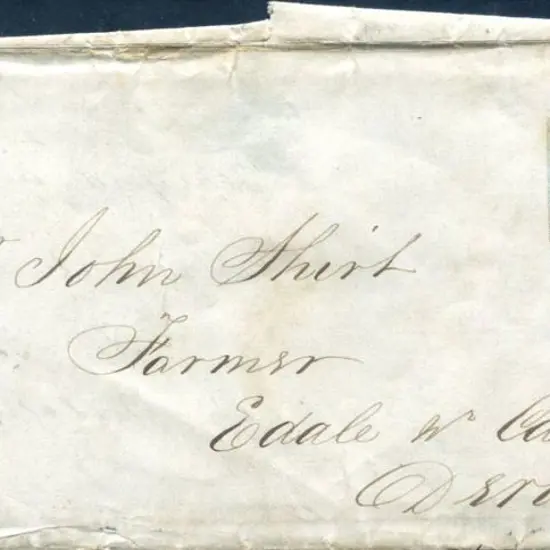 John Shirt
Farmer
Edale nr Ca
Der